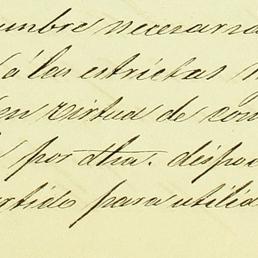 umbre necesaria
á las estrictas
en virtud de con
por dha. dispo
rtido para utilid